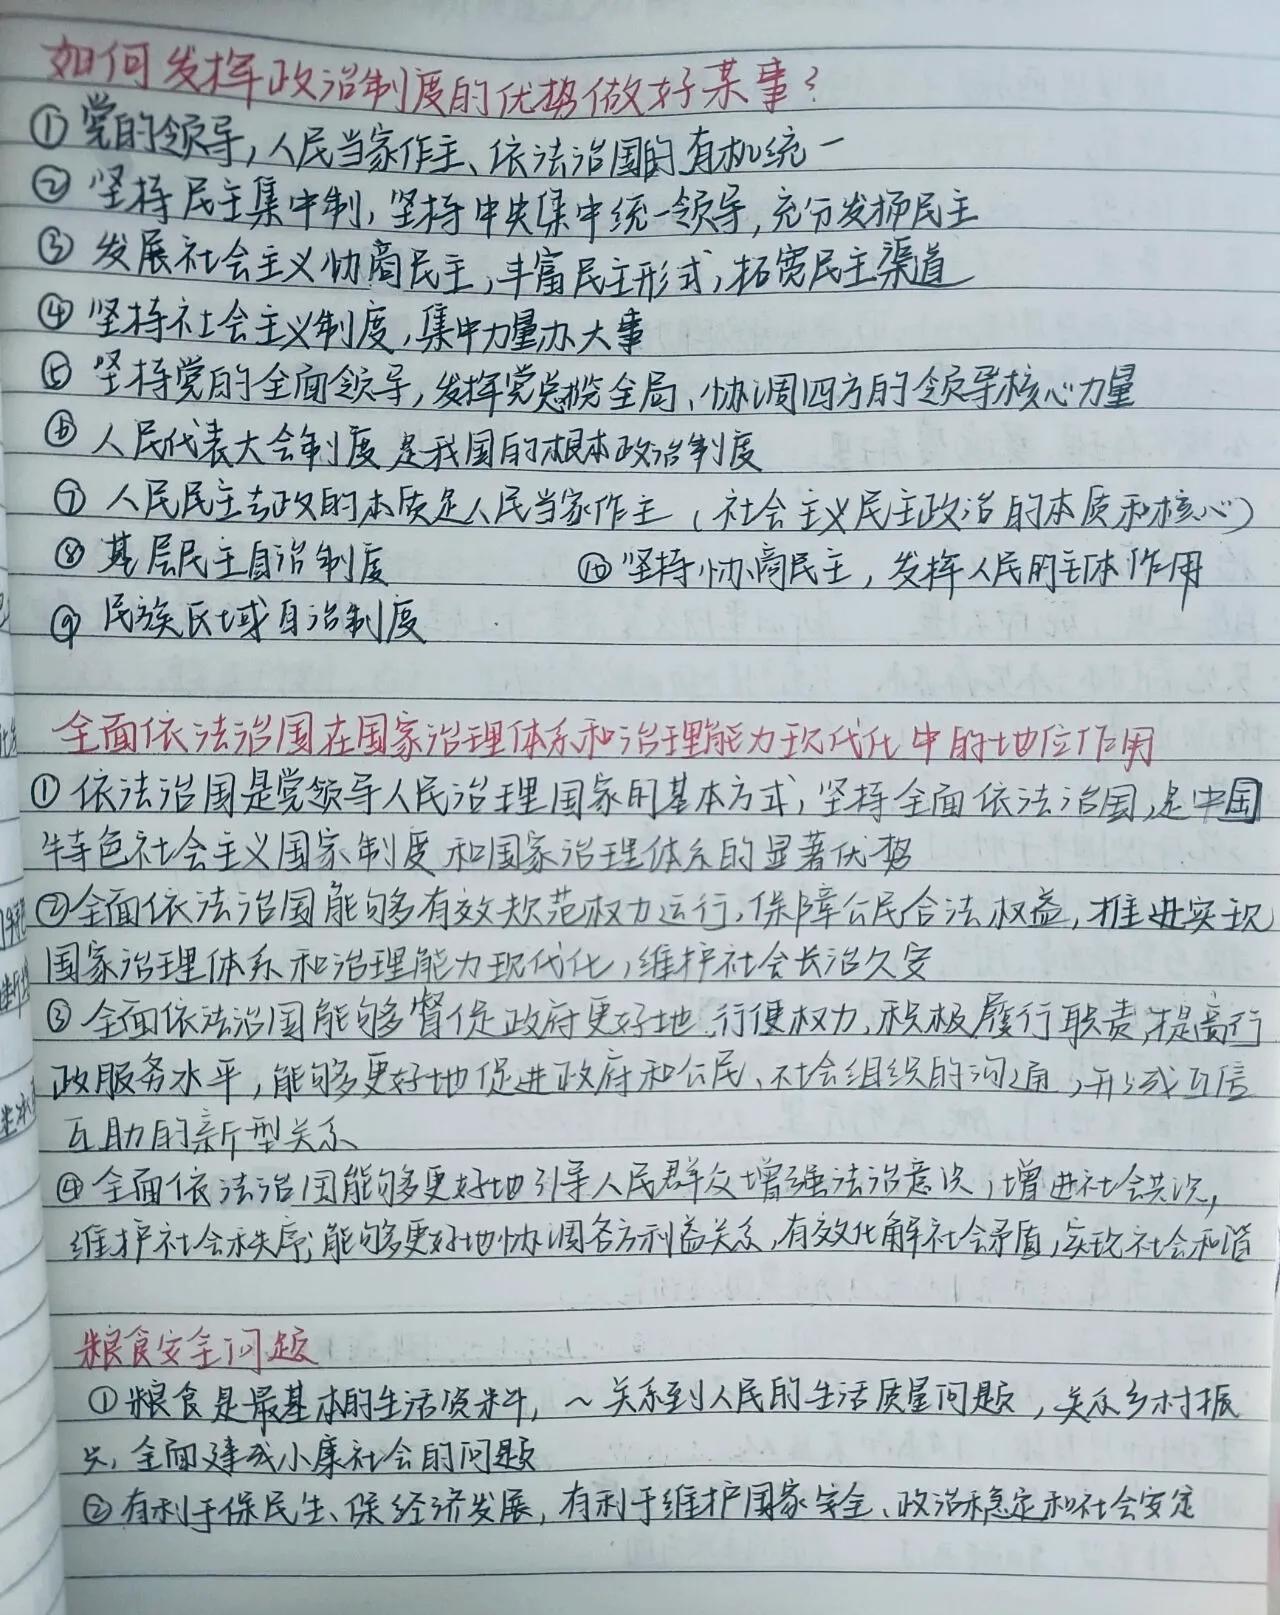 如何发挥政治制度的优势做好某事?
①党的领导,人民当家作主、依法治国的有机统一
②坚持民主集中制,坚持中央集中统一领导,充分发扬民主
③发展社会主义协商民主,丰富民主形式,拓宽民主渠道
④坚持社会主义制度,集中力量办大事
⑤坚持党的全面领导,发挥党总揽全局、协调四方的领导核心力量
⑥人民代表大会制度是我国的根本政治制度
⑦人民民主专政的本质是人民当家作主(社会主义民主政治的本质和核心)
⑧基层民主自治制度 ⑩坚持协商民主,发挥人民的主体作用
⑨民族区域自治制度
全面依法治国在国家治理体系和治理能力现代化中的地位作用
①依法治国是党领导人民治理国家的基本方式,坚持全面依法治国,是中国
特色社会主义国家制度和国家治理体系的显著优势
②全面依法治国能够有效规范权力运行,保障公民合法权益,推进实现
国家治理体系和治理能力现代化,维护社会长治久安
③全面依法治国能够督促政府更好地行使权力,积极履行职责,提高行
政服务水平,能够更好地促进政府和公民、社会组织的沟通,形成互信
互助的新型关系
④全面依法治国能够更好地引导人民群众增强法治意识,增进社会共识,
维护社会秩序;能够更好地协调各方利益关系,有效化解社会矛盾,实现社会和谐
粮食安全问题
①粮食是最基本的生活资料,~关系到人民的生活质量问题,关系乡村振
兴,全面建成小康社会的问题
②有利于保民生、保经济发展,有利于维护国家安全、政治稳定和社会安定